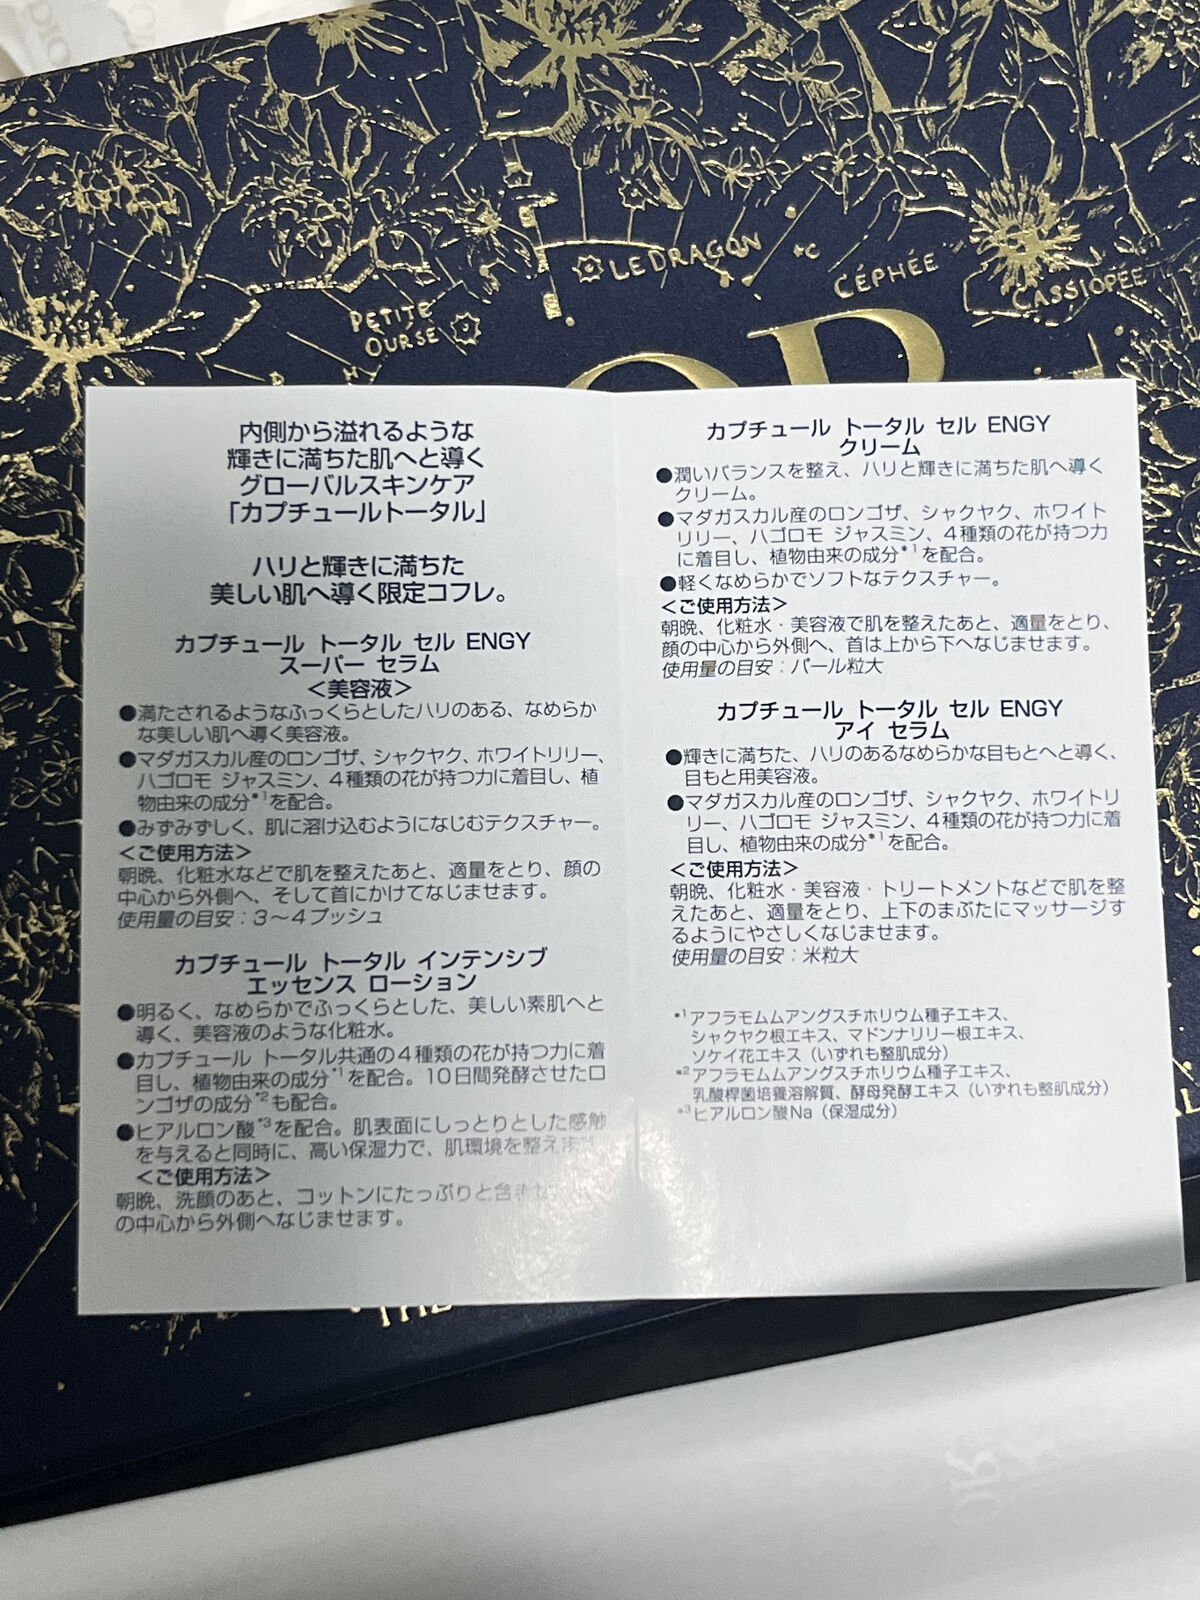 DIOR
LE DRAGON
CÉPHÉE
CASSIOPÉE
PETITE
OURSE
内側から溢れるような
輝きに満ちた肌へと導く
グローバルスキンケア
「カプチュールトータル」
ハリと輝きに満ちた
美しい肌へ導く限定コフレ。
カプチュール トータル セル ENGY
スーパー セラム
<美容液>
●満たされるようなふっくらとしたハリのある、なめらか
な美しい肌へ導く美容液。
●マダガスカル産のロンゴザ、シャクヤク、ホワイトリリー、
ハゴロモ ジャスミン、4種類の花が持つ力に着目し、植
物由来の成分*1を配合。
●みずみずしく、肌に溶け込むようになじむテクスチャー。
<ご使用方法>
朝晩、化粧水などで肌を整えたあと、適量をとり、顔の
中心から外側へ、そして首にかけてなじませます。
使用量の目安：3〜4プッシュ
カプチュール トータル インテンシブ
エッセンス ローション
●明るく、なめらかでふっくらとした、美しい素肌へと
導く、美容液のような化粧水。
●カプチュール トータル共通の4種類の花が持つ力に着
目し、植物由来の成分*1を配合。10日間発酵させたロ
ンゴザの成分*2も配合。
●ヒアルロン酸*3を配合。肌表面にしっとりとした感触
を与えると同時に、高い保湿力で、肌環境を整えま
<ご使用方法>
朝晩、洗顔のあと、コットンにたっぷりと含ませ
の中心から外側へなじませます。
カプチュール トータル セル ENGY
クリーム
●潤いバランスを整え、ハリと輝きに満ちた肌へ導く
クリーム。
●マダガスカル産のロンゴザ、シャクヤク、ホワイト
リリー、ハゴロモ ジャスミン、4種類の花が持つ力
に着目し、植物由来の成分*1を配合。
●軽くなめらかでソフトなテクスチャー。
<ご使用方法>
朝晩、化粧水・美容液で肌を整えたあと、適量をとり、
顔の中心から外側へ、首は上から下へなじませます。
使用量の目安：パール粒大
カプチュール トータル セル ENGY
アイ セラム
●輝きに満ちた、ハリのあるなめらかな目もとへと導く、
目もと用美容液。
●マダガスカル産のロンゴザ、シャクヤク、ホワイトリ
リー、ハゴロモ ジャスミン、4種類の花が持つ力に着
目し、植物由来の成分*1を配合。
<ご使用方法>
朝晩、化粧水・美容液・トリートメントなどで肌を整
えたあと、適量をとり、上下のまぶたにマッサージす
るようにやさしくなじませます。
使用量の目安：米粒大
*1アフラモムムアングスチホリウム種子エキス、
シャクヤク根エキス、マドンナリリー根エキス、
ソケイ花エキス（いずれも整肌成分）
*2アフラモムムアングスチホリウム種子エキス、
乳酸桿菌培養溶解質、酵母発酵エキス（いずれも整肌成分）
*3ヒアルロン酸Na（保湿成分）